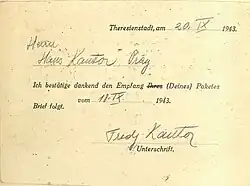 Theresienstadt, am 20. IX 1943.
Herrn
Hans Kantor Prag
Ich bestätige dankend den Empfang Ihres (Deines) Paketes
vom 11.IX 1943.
Brief folgt.
Fredy Kantor
Unterschrift.